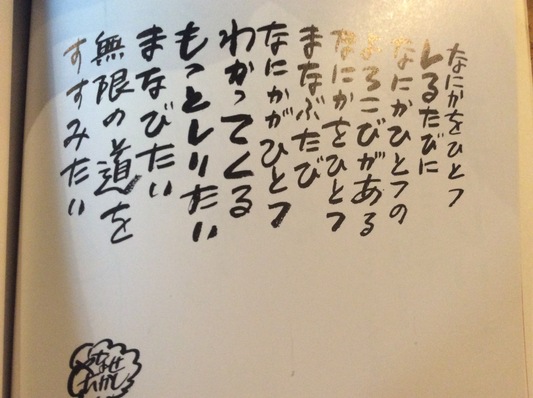 なにかをひとつ
しるたびに
なにかひとつの
よろこびがある
なにかをひとつ
まなぶたび
なにかがひとつ
わかってくる
もっとしりたい
まなびたい
無限の道を
すすみたい
やなせ
たかし